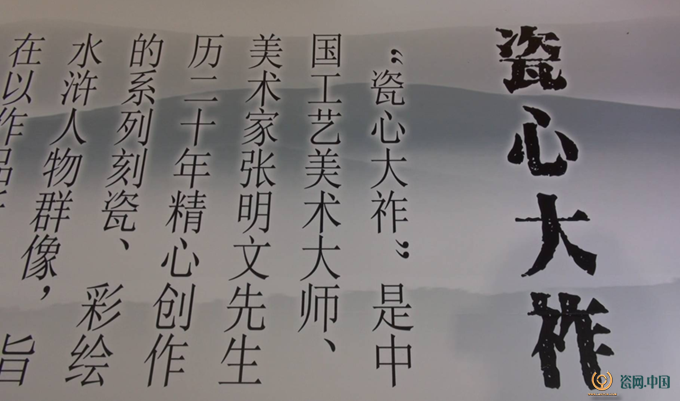 瓷心大祚
“瓷心大祚”是中
国工艺美术大师、
美术家张明文先生
历二十年精心创作
的系列刻瓷、彩绘
水浒人物群像，旨
在以作品
瓷网.中国